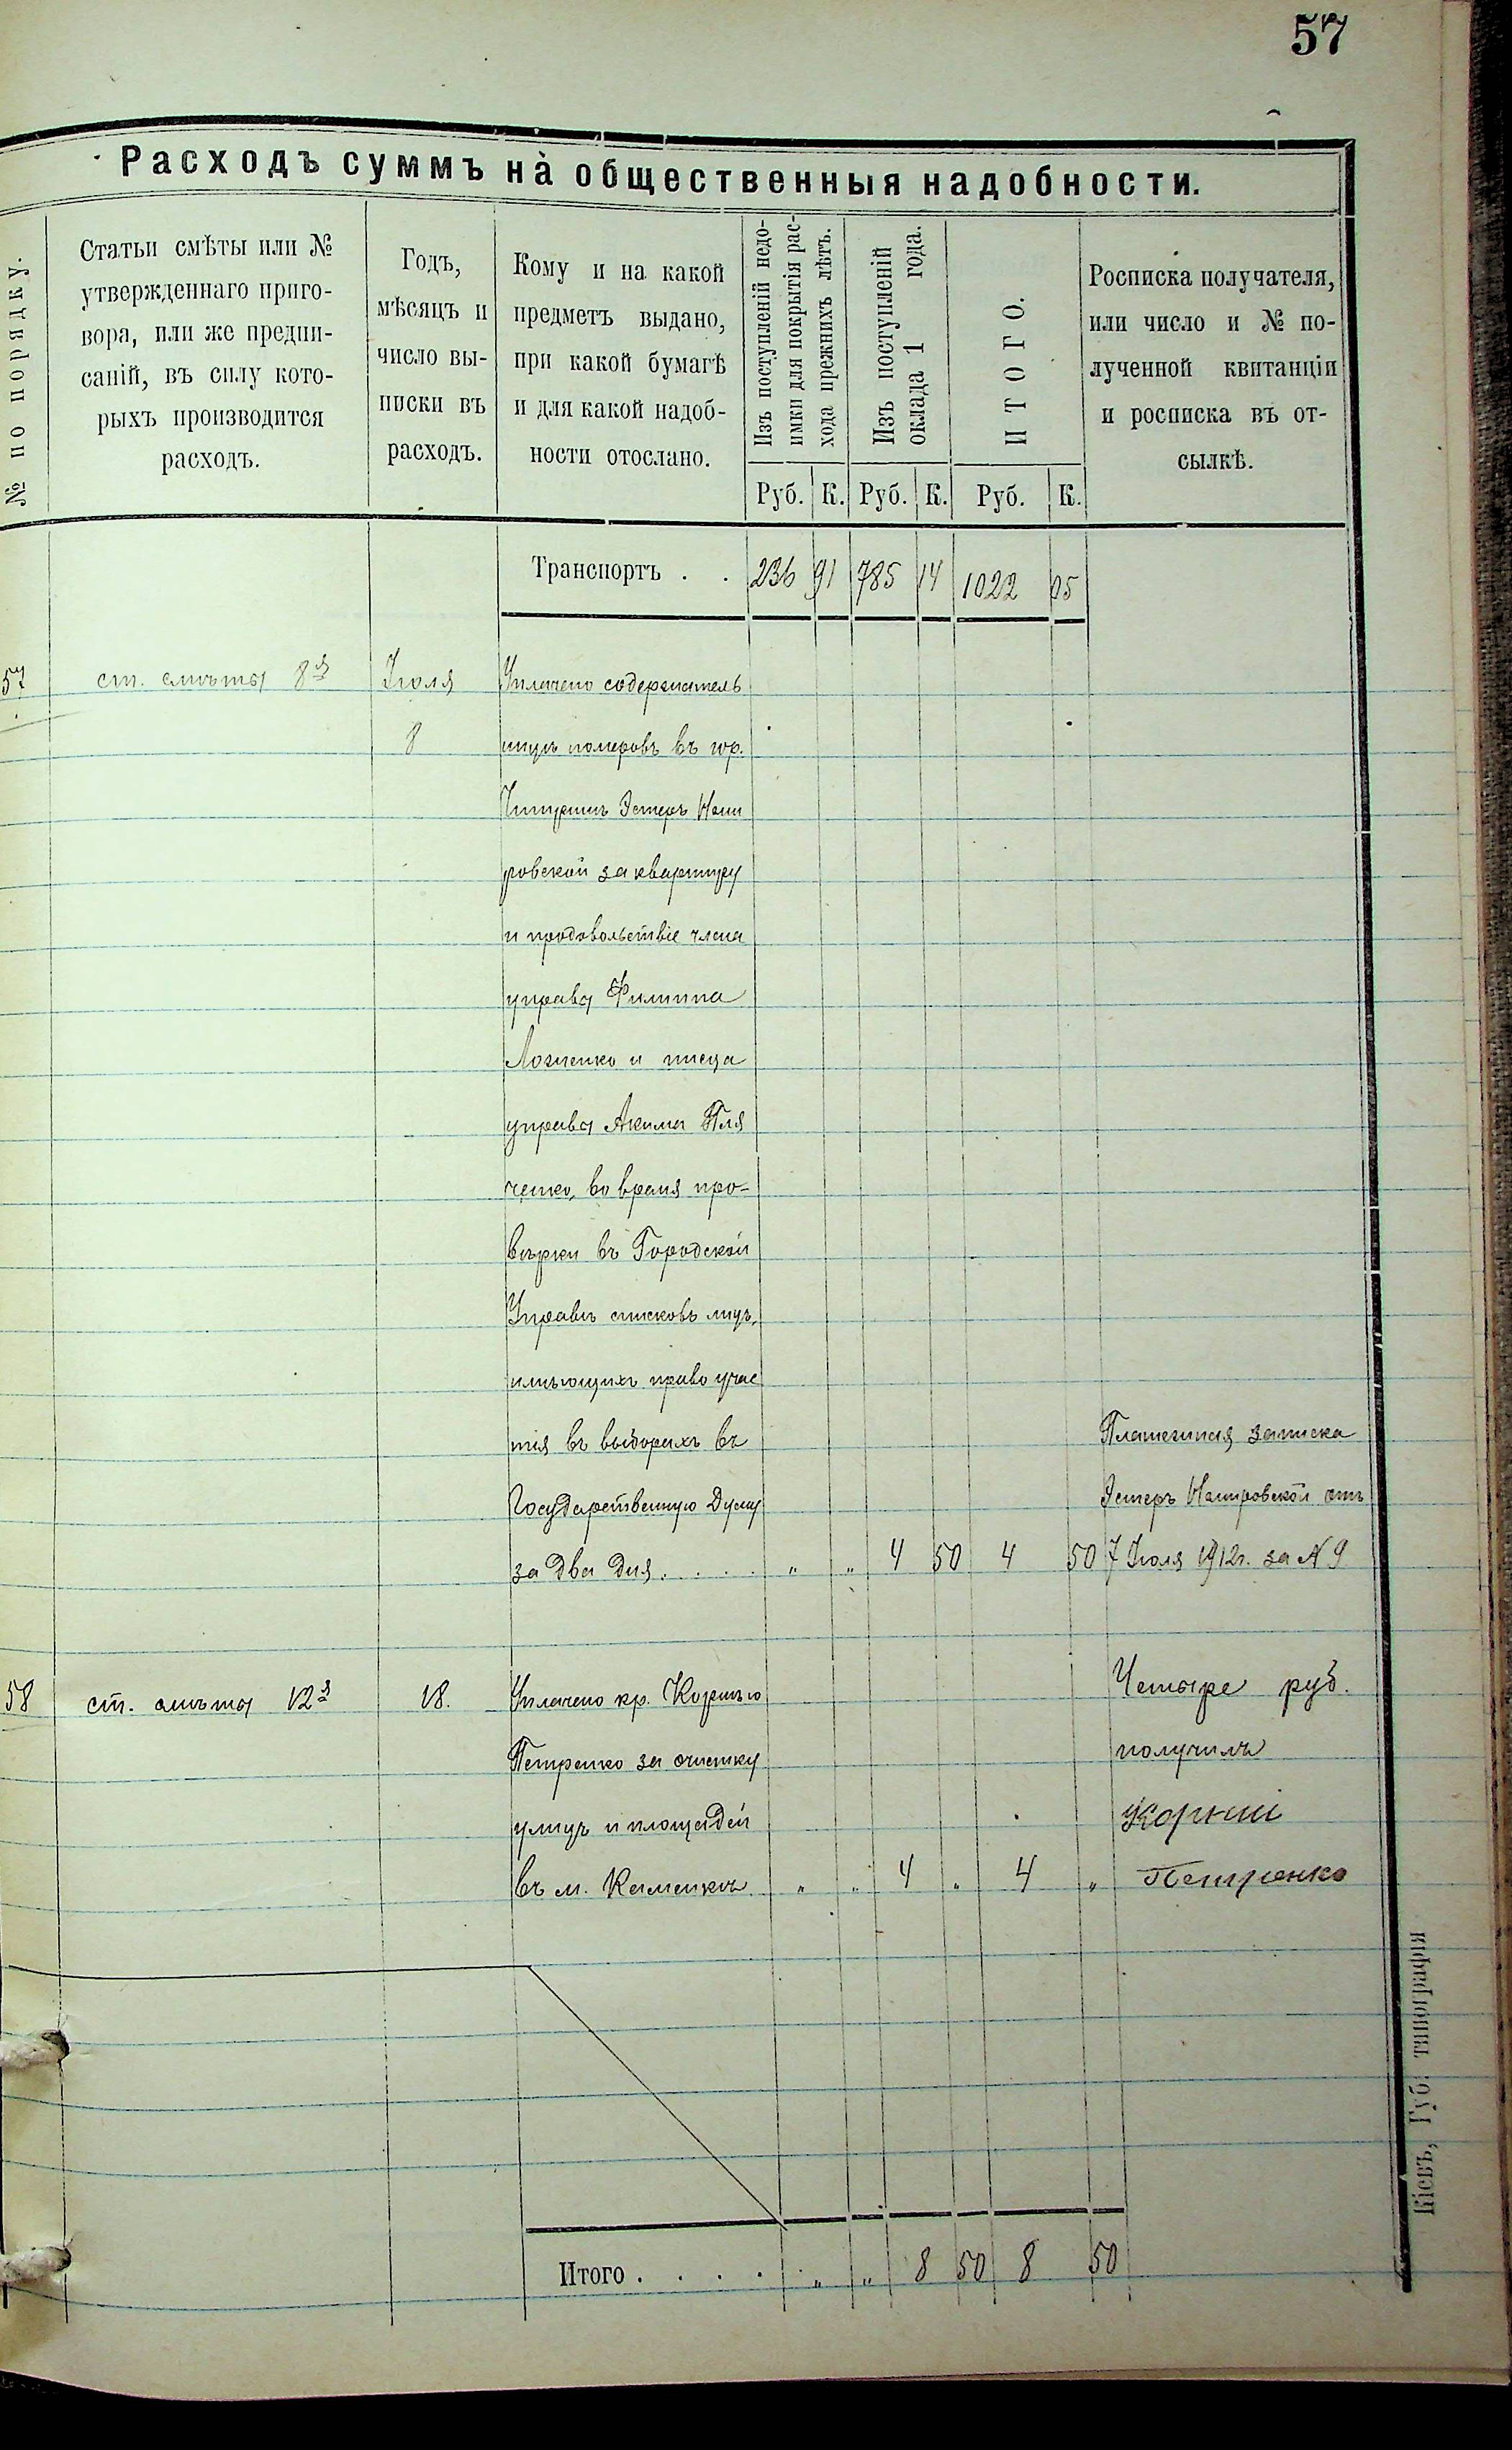 57
Расходъ суммъ на общественныя надобности.
№ по порядку.
Статьи смѣты или №
утвержденнаго приго-
вора, или же предпи-
саній, въ силу кото-
рыхъ производится
расходъ.
Годъ,
мѣсяцъ и
число вы-
писки въ
расходъ.
Кому и на какой
предметъ выдано,
при какой бумагѣ
и для какой надоб-
ности отослано.
Изъ поступленій недо-
имки для покрытія рас-
хода прежнихъ лѣтъ.
Изъ поступленій
оклада 1 года.
ИТОГО.
Росписка получателя,
или число и № по-
лученной квитанціи
и росписка въ от-
сылкѣ.
Руб. К. Руб. К. Руб. К.
Транспортъ . . 236 91 785 14 1022 05
57 ст. смѣты 8я Іюля Уплачено содержатель
8 ницѣ номеровъ въ гор.
Чигиринѣ Эстеръ
ровской за квартиру
и продовольствіе члена
управы Филиппа
Лозненко и писца
управы Акима Пля
ченко, во время про-
вѣрки въ Городской
Управѣ списковъ лицъ,
имѣющихъ право учас
тія въ выборахъ въ
Платежная записка
Государственную Думу
Эстеръ отъ
за два дня . . . . „ „ 4 50 4 50 7 Іюля 1912г. за № 9
58 ст. смѣты 12я 18. Уплачено кр. Корнѣю
Четыре руб.
Петренко за очистку
получилъ
улицъ и площадей
Корній
въ м. Каменкѣ. „ „ 4 „ 4 „ Петренко
Итого . . . . „ „ 8 50 8 50
Кіевъ, Губ. типографія